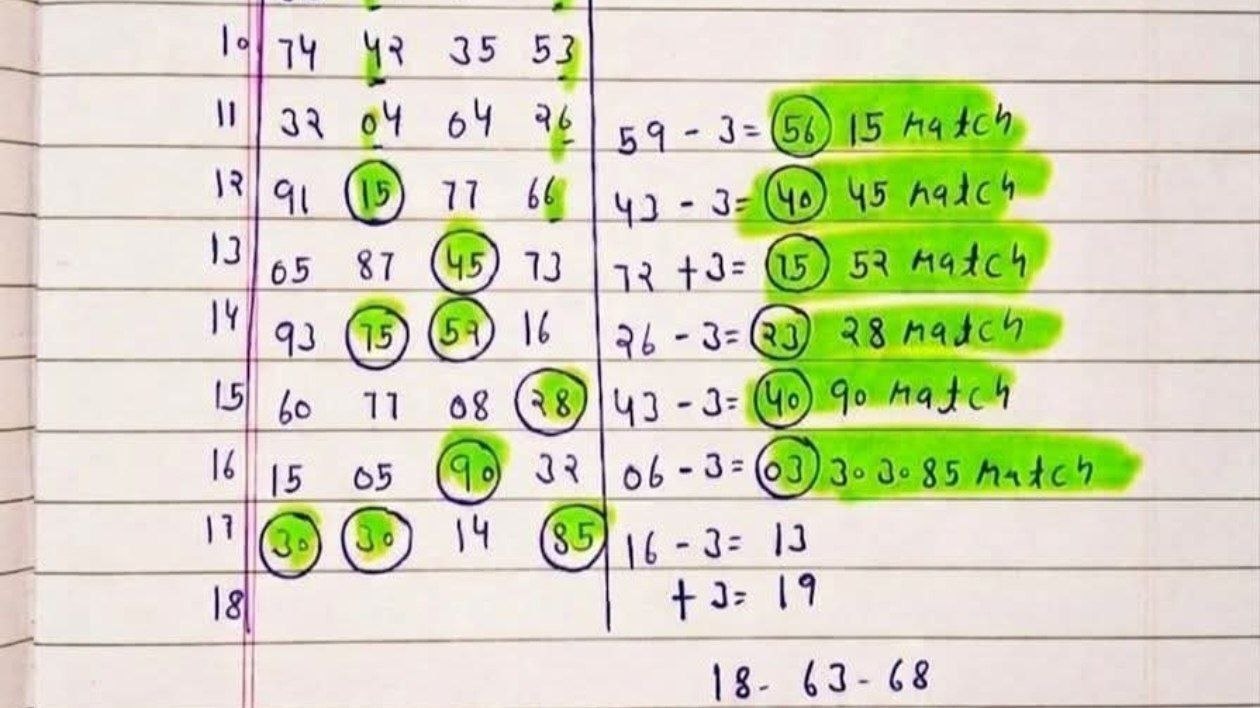 10 74 42 35 53
11 32 04 04 26 59 - 3= 56 15 match
12 91 15 77 66 43 - 3= 40 45 match
13 05 87 45 73 72 +3= 75 52 match
14 93 75 52 16 26 - 3= 23 28 match
15 60 77 08 28 43 - 3= 40 90 match
16 15 05 90 32 06 - 3= 03 30 30 85 match
17 30 30 14 85 16 - 3= 13
18 + 3= 19
18- 63-68